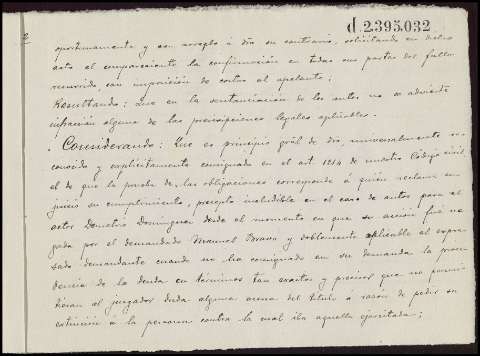 2
d 2.395.032
oportunamente y con arreglo á dro su contrario, solicitando en dicho
acto el compareciente la confirmación en todas sus partes del fallo
recurrido, con imposición de costas al apelante.
Resultando: Que en la sustanciación de los autos no se advierte
infracción alguna de las prescripciones legales aplicables.
Considerando: Que es principio gral de dro, universalmente re-
conocido y explícitamente consignado en el art. 1214 de nuestro Código civil
el de que la prueba de las obligaciones corresponde á quién reclama en
juicio su cumplimiento, precepto ineludible en el caso de autos para el
actor Demetrio Dominguez desde el momento en que su acción fué ne-
gada por el demandado Manuel Bravo y doblemente aplicable al expre-
sado demandante cuando no ha consignado en su demanda la proce-
dencia de la deuda en términos tan exactos y precisos que no permi-
tieran al juzgador duda alguna acerca del título ó razón de pedir su
extinción á la persona contra la cual iba aquella ejercitada;